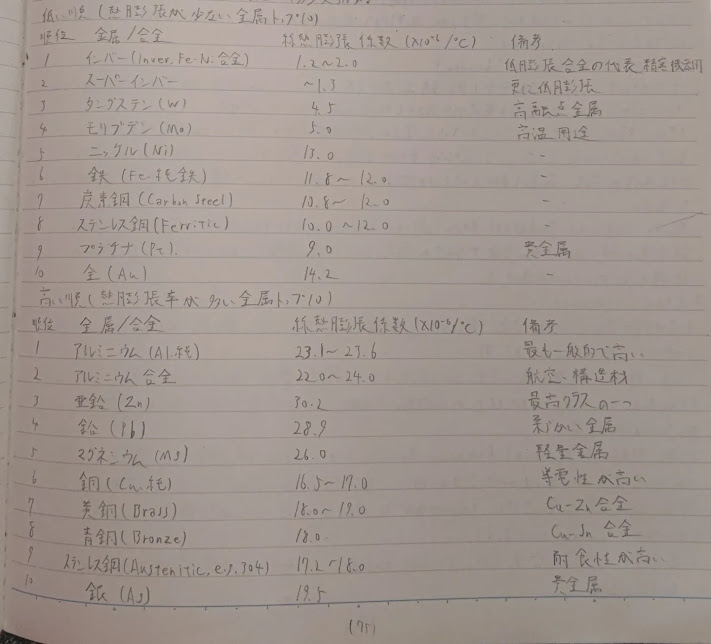 低い順(熱膨張が少ない金属トップ10)
順位 金属/合金 線熱膨張係数(×10⁻⁶/℃) 備考
1 インバー(Inver, Fe-Ni合金) 1.2~2.0 低膨張合金の代表 精密機器用
2 スーパーインバー ~1.3 更に低膨張
3 タングステン(W) 4.5 高融点金属
4 モリブデン(Mo) 5.0 高温用途
5 ニッケル(Ni) 13.0 -
6 鉄(Fe・純鉄) 11.8~12.0 -
7 炭素鋼(Carbon Steel) 10.8~12.0 -
8 ステンレス鋼(Ferritic) 10.0~12.0 -
9 プラチナ(Pt). 9.0 貴金属
10 金(Au) 14.2 -
高い順(熱膨張率が多い金属トップ10)
順位 金属/合金 線熱膨張係数(×10⁻⁶/℃) 備考
1 アルミニウム(Al.純) 23.1~23.6 最も一般的で高い
2 アルミニウム合金 22.0~24.0 航空・構造材
3 亜鉛(Zn) 30.2 最高クラスの一つ
4 鉛(Pb) 28.9 柔らかい金属
5 マグネシウム(Mg) 26.0 軽量金属
6 銅(Cu.純) 16.5~17.0 導電性が高い
7 黄銅(Brass) 18.0~19.0 Cu-Zn合金
8 青銅(Bronze) 18.0 Cu-Sn合金
9 ステンレス鋼(Austenitic, e.g.304) 17.2~18.0 耐食性が高い
10 銀(Ag) 19.5 貴金属
(75)